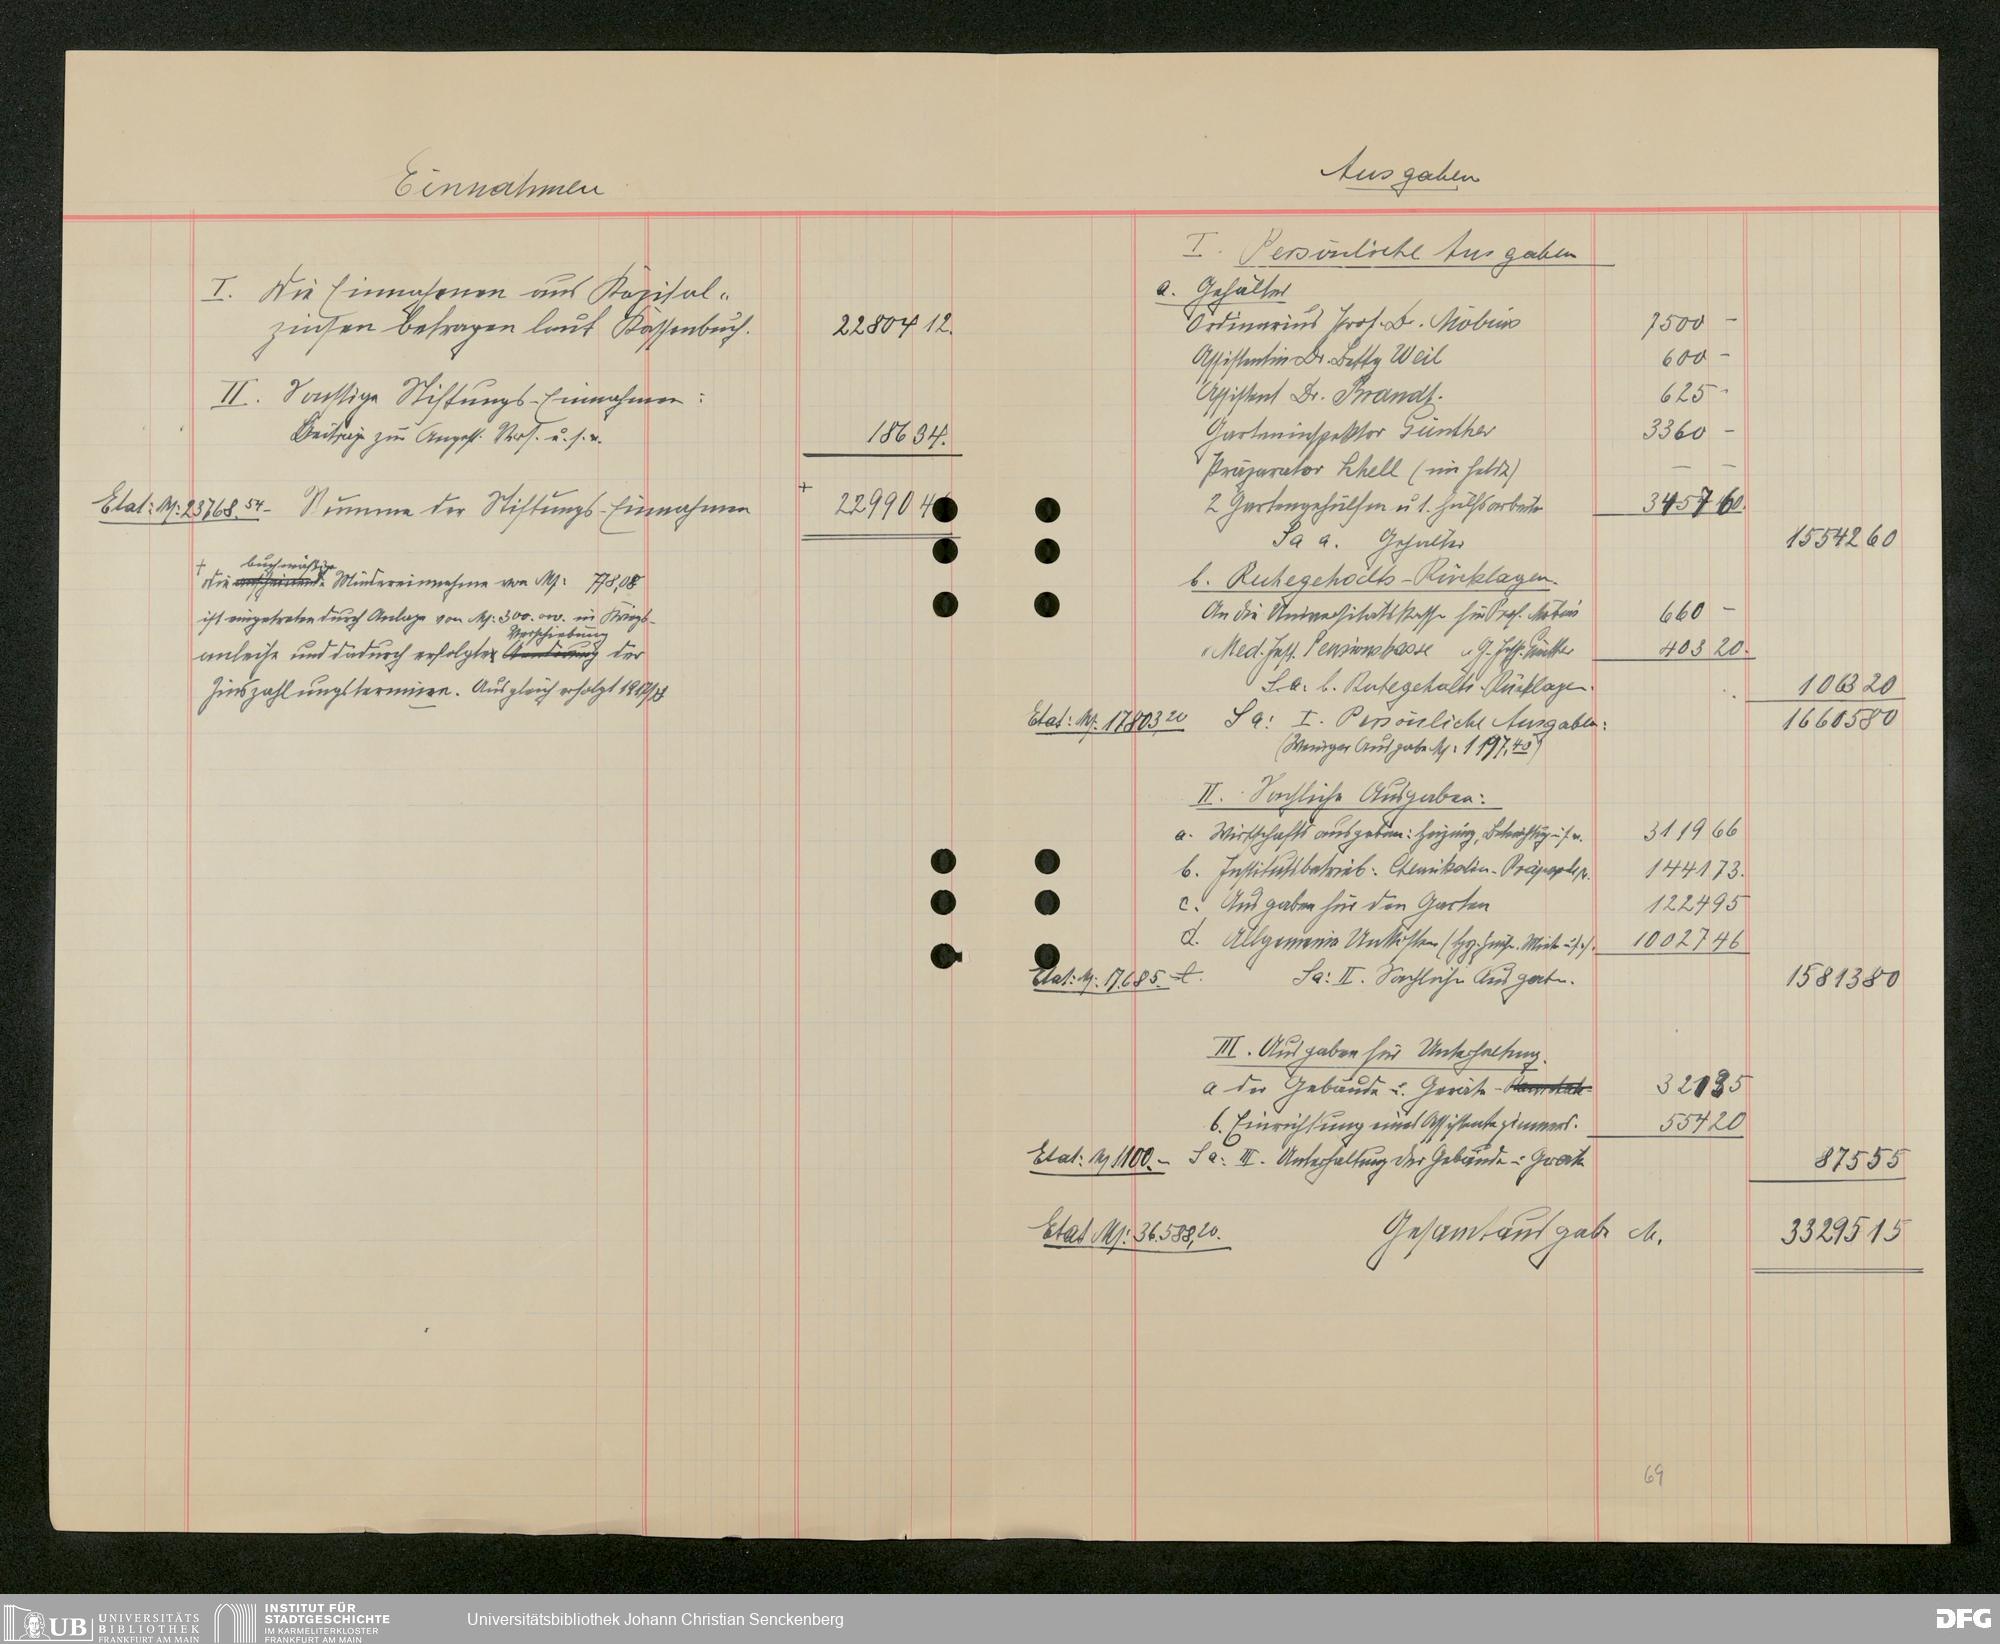 Einnahmen
I. Die Einnahmen aus Kapital-
zinsen betragen laut Kassenbuch. 22804 12.
II. Sonstige Stiftungs-Einnahmen:
Beiträge zur Angest. Vers. u.s.w. 186 34.
Etat: M: 23768.54- Summe der Stiftungs-Einnahmen + 22990 4
buchmäßige
+ Die Mindereinnahme von M: 778,08
ist eingetreten durch Anlage von M: 300.000. in Kriegs-
Verschiebung
anleihe und dadurch erfolgter der
Zinszahlungstermine. Ausgleich erfolgt 1917/18
Ausgaben
I. Persönliche Ausgaben
a. Gehälter
Ordinarius Prof. Dr. Möbius 7500 -
Assistentin Dr. Betty Weil 600 -
Assistent Dr. Brandt. 625 -
Garteninspektor Günther 3360 -
Präparator Schell (im Felde) - -
2 Gartengehülfen u 1. Hülfsarbeiter 3457 60.
Sa a. Gehälter 15542 60
b. Ruhegehalts-Rücklagen.
An die Universitätskasse für Prof. Möbius 660 -
" Med. Inst. Pensionskasse " G. Insp. Günther 403 20.
Sa: b. Ruhegehalts-Rücklagen. 1063 20
Etat: M. 17803,20 Sa: I. Persönliche Ausgaben: 16605 80
(Weniger Ausgabe M: 1197,40)
II. Sachliche Ausgaben:
a. Wirtschaftsausgaben: Heizung, Beleuchtung u.s.w. 3119 66
b. Institutsbetrieb: Chemikalien- Präparate pp. 1441 73.
c. Ausgaben für den Garten 1224 95
d. Allgemeine Unkosten ( Miete u.s.w.). 10027 46
Etat: M: 17.685.- Sa: II. Sachliche Ausgaben. 15813 80
III. Ausgaben für Unterhaltung.
a der Gebäude u. Geräte- 321 35
b. Einrichtung eines Assistentenzimmers. 554 20
Etat: M 1100.- Sa: III. Unterhaltung der Gebäude u. Geräte 875 55
Etat M: 36.588,20. Gesamtausgabe M. 33295 15
69
UB UNIVERSITÄTS
BIBLIOTHEK
FRANKFURT AM MAIN
INSTITUT FÜR
STADTGESCHICHTE
IM KARMELITERKLOSTER
FRANKFURT AM MAIN
Universitätsbibliothek Johann Christian Senckenberg
DFG